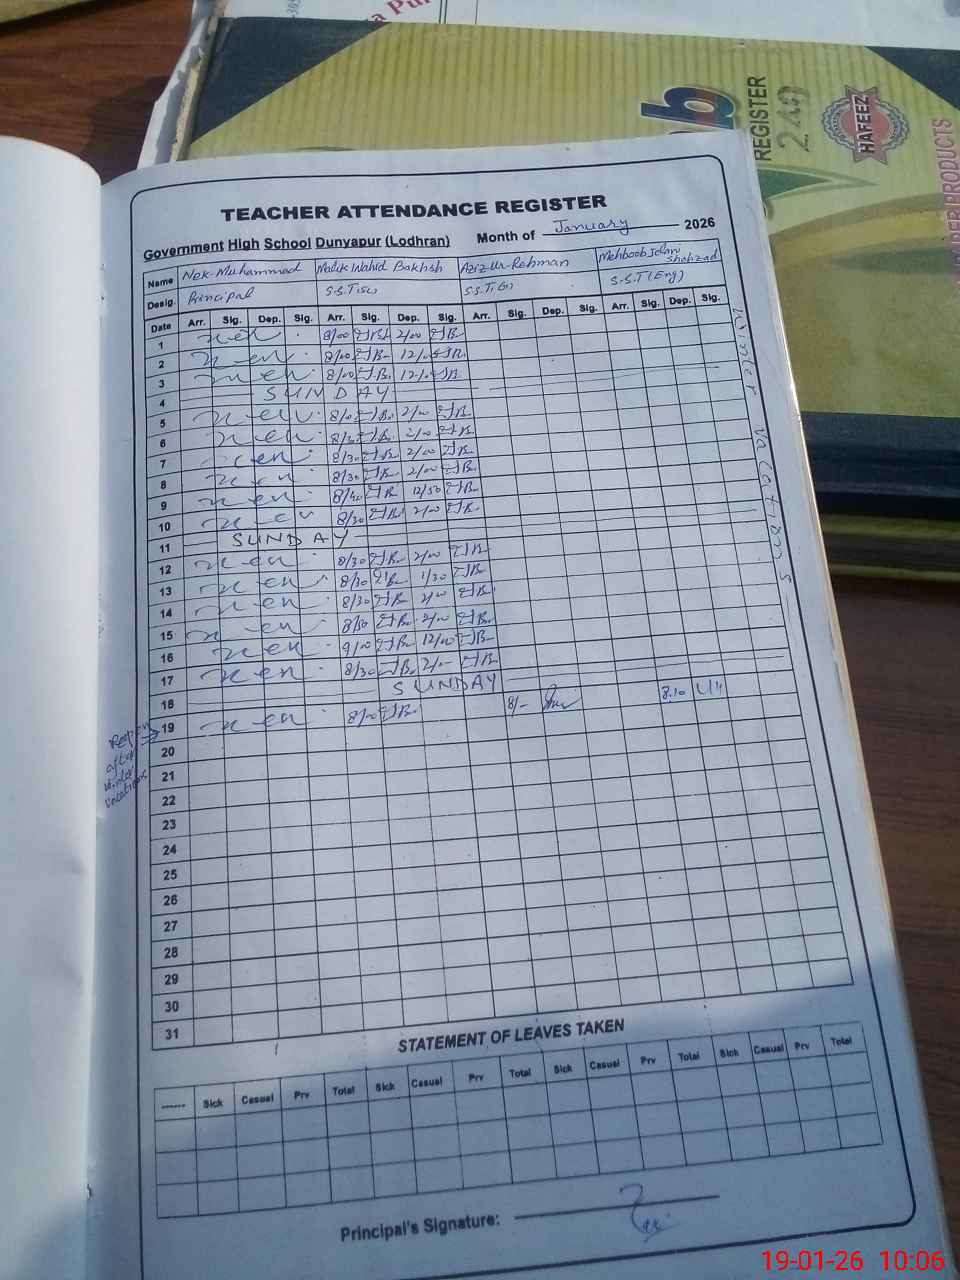 REGISTER
240
HAFEEZ
PAPER PRODUCTS
TEACHER ATTENDANCE REGISTER
Government High School Dunyapur (Lodhran) Month of January 2026
Name Nek-Muhammad Malik Wahid Bakhsh Aziz-Ur-Rehman Mehboob Jelani Shahzad
Desig. Principal S.S.T(Sc) S.S.T(G) S.S.T(Eng)
Date Arr. Sig. Dep. Sig. Arr. Sig. Dep. Sig. Arr. Sig. Dep. Sig. Arr. Sig. Dep. Sig.
1 8/00 2/00
2 8/00 12/00
3 8/00 12/00
4 SUNDAY
5 8/00 2/00
6 8/30 2/00
7 8/30 2/00
8 8/30 2/00
9 8/40 12/50
10 8/30 2/00
11 SUNDAY
12 8/30 2/00
13 8/30 1/30
14 8/30 2/00
15 8/30 2/00
16 9/00 12/00
17 8/30 2/-
18 SUNDAY
19 8/00 8/- 8.10
20
21
22
23
24
25
26
27
28
29
30
31
Winter Vacations
Reopen after winter vacations
STATEMENT OF LEAVES TAKEN
------ Sick Casual Prv Total Sick Casual Prv Total Sick Casual Prv Total Sick Casual Prv Total
Principal's Signature:
19-01-26 10:06